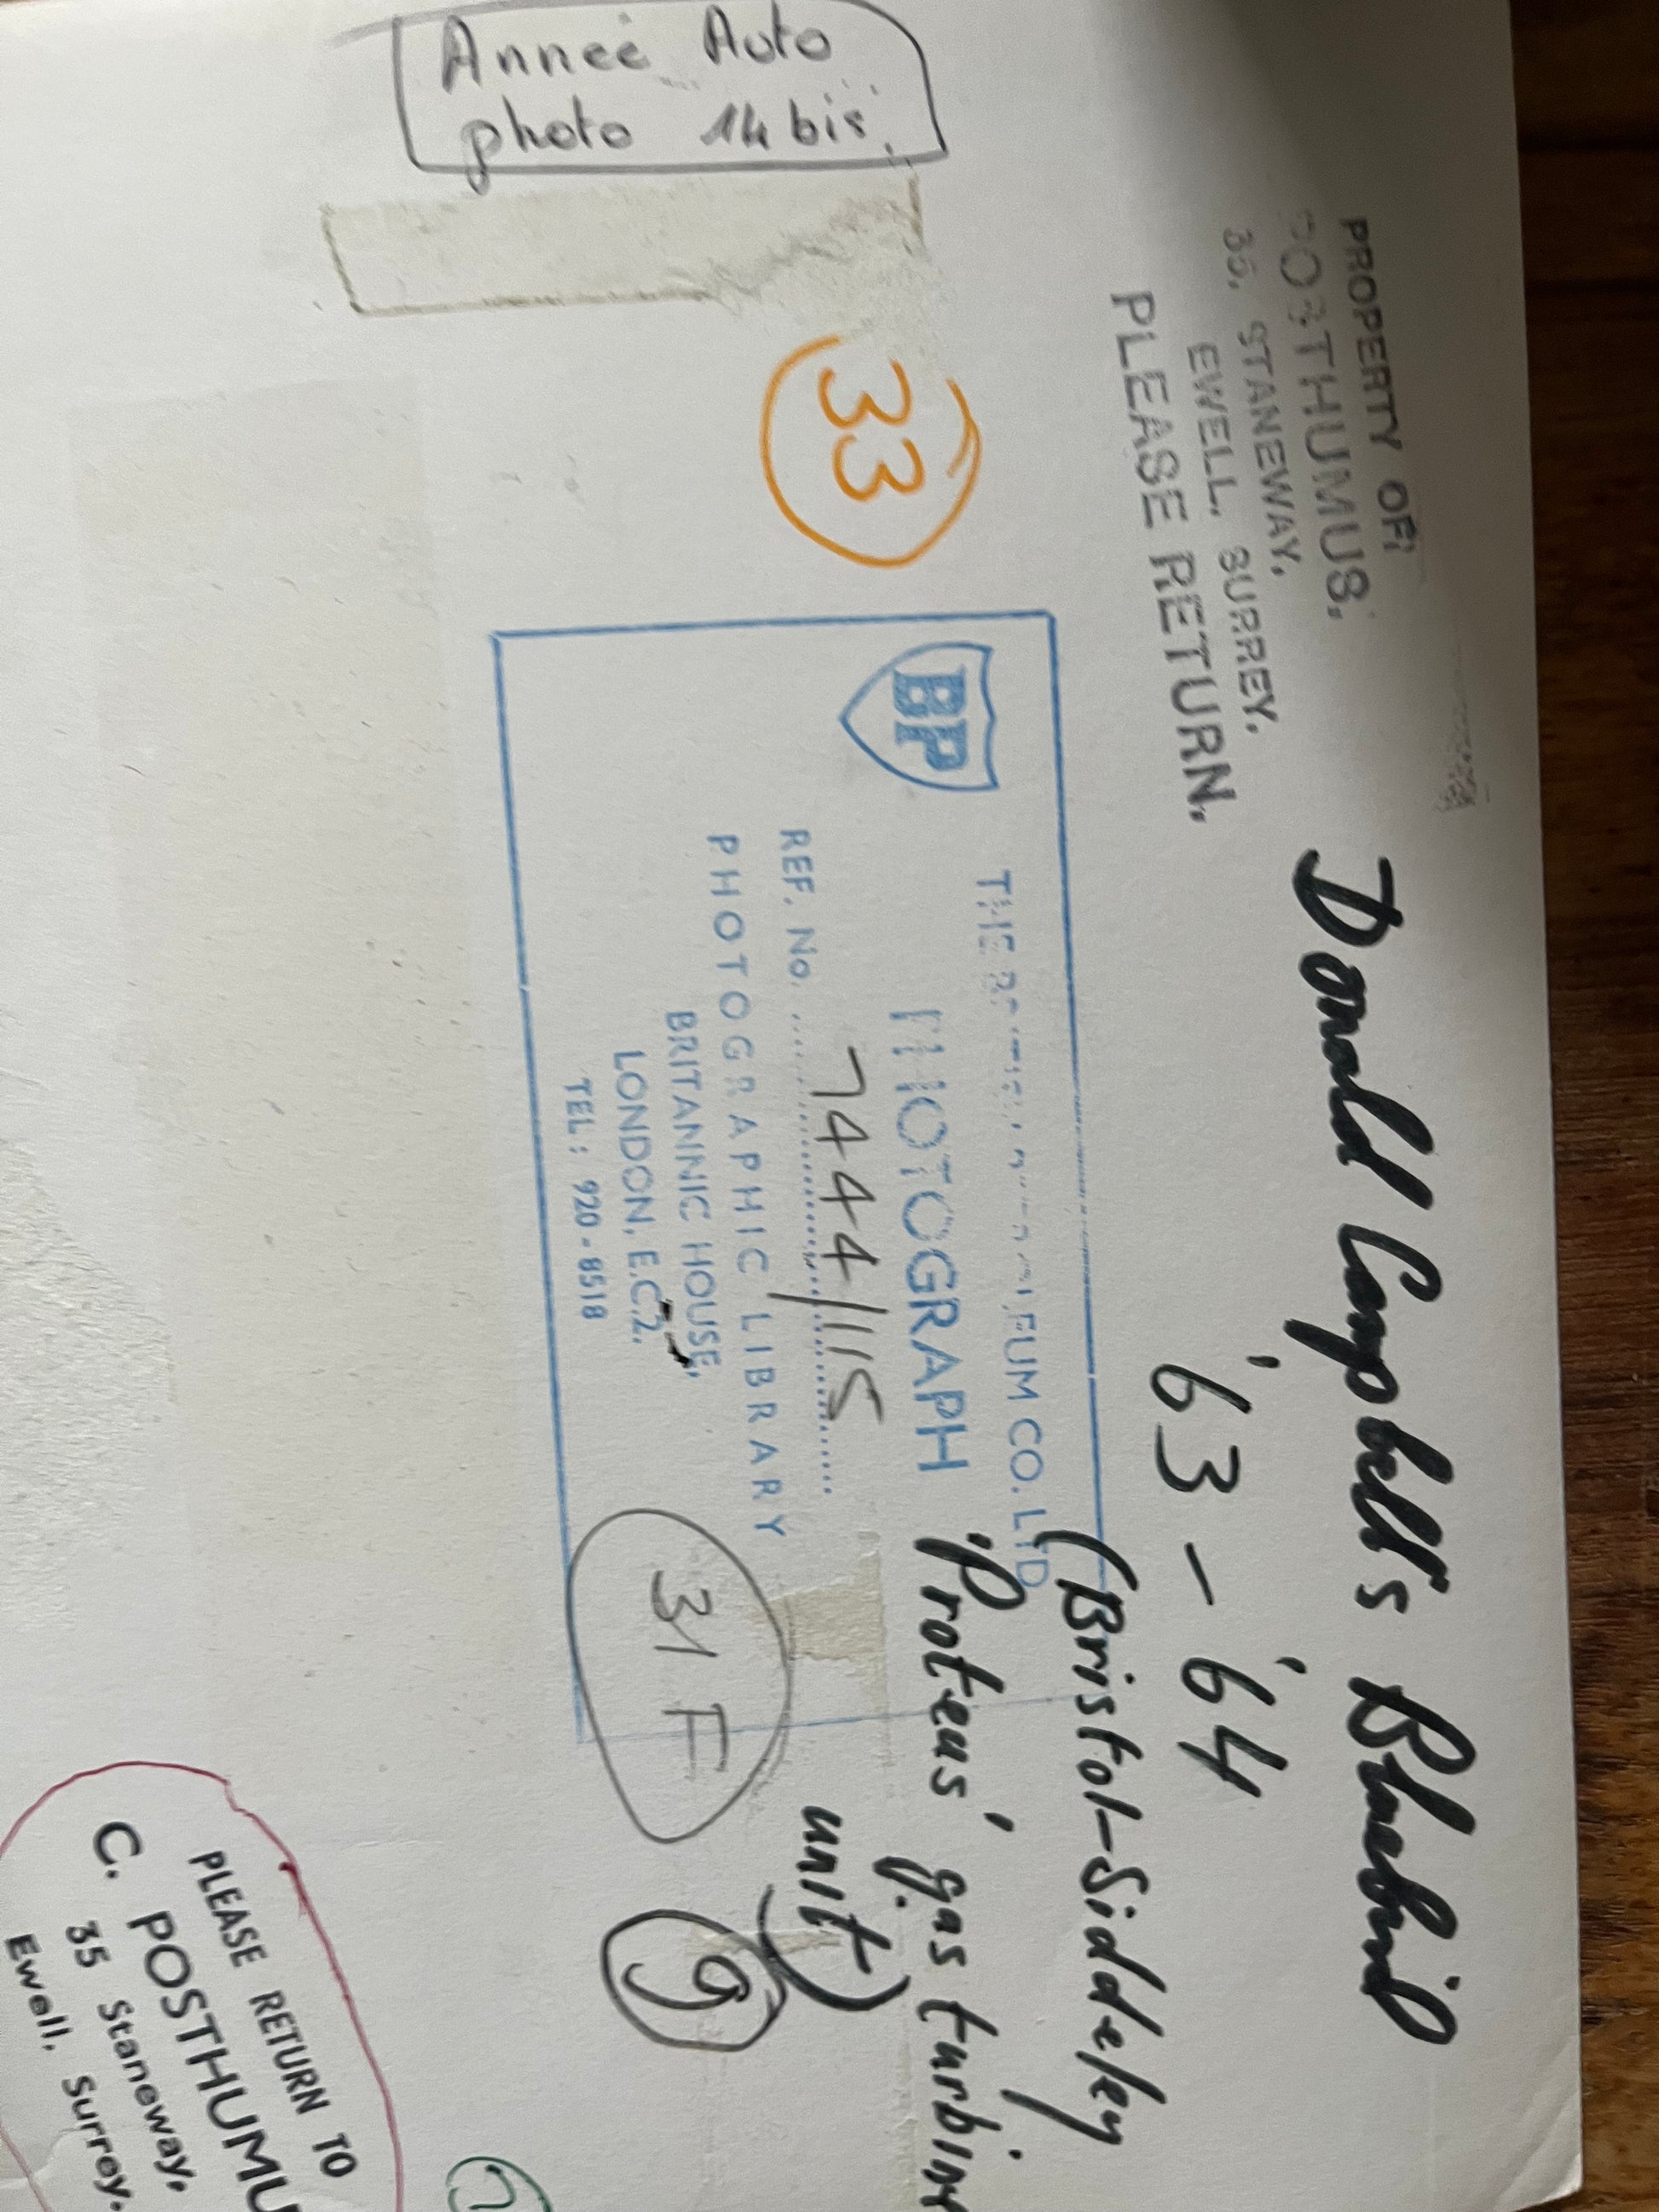 PROPERTY OF:
POSTHUMUS,
35, STANEWAY,
EWELL, SURREY.
PLEASE RETURN.
Donald Campbell's Bluebird
'63 - '64
(Bristol-Siddeley
'Proteus' gas turbine
unit)
Anneé Auto
photo 14 bis.
33
BP
THE FUM CO. LTD
PHOTOGRAPH
REF. No. 7444/115
PHOTOGRAPHIC LIBRARY
BRITANNIC HOUSE,
LONDON, E.C.2.
TEL: 920-8518
31 F
9
PLEASE RETURN TO
C. POSTHUMU
35 Staneway,
Ewell, Surrey.